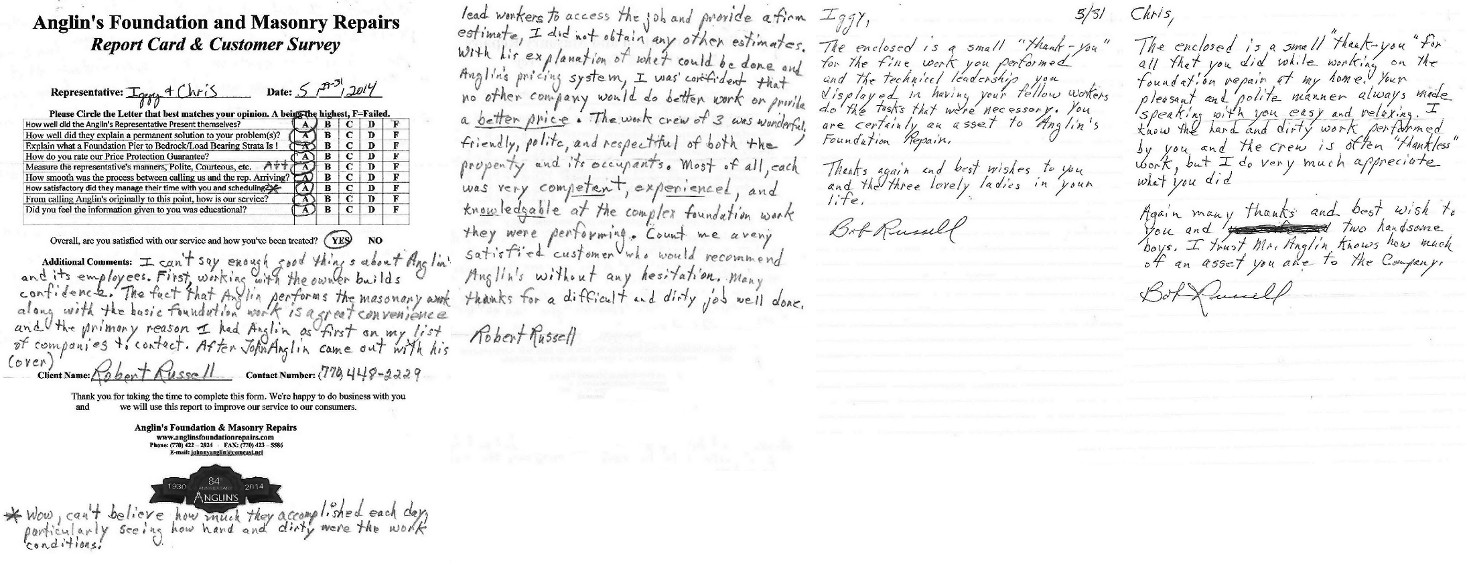 Anglin's Foundation and Masonry Repairs
Report Card & Customer Survey
Representative: Iggy & Chris Date: 5 31, 2014
Please Circle the Letter that best matches your opinion. A being the highest, F–Failed.
How well did the Anglin's Representative Present themselves? A B C D F
How well did they explain a permanent solution to your problem(s)? A B C D F
Explain what a Foundation Pier to Bedrock/Load Bearing Strata Is ! A B C D F
How do you rate our Price Protection Guarantee? A B C D F
Measure the representative's manners; Polite, Courteous, etc. A++ A B C D F
How smooth was the process between calling us and the rep. Arriving? A B C D F
How satisfactory did they manage their time with you and scheduling? * A B C D F
From calling Anglin's originally to this point, how is our service? A B C D F
Did you feel the information given to you was educational? A B C D F
Overall, are you satisfied with our service and how you've been treated? YES NO
Additional Comments: I can't say enough good things about Anglin's
and its employees. First, working with the owner builds
confidence. The fact that Anglin performs the masonary work
along with the basic foundation work is a great convenience
and the primary reason I had Anglin as first on my list
of companies to contact. After John Anglin came out with his
(over)
Client Name: Robert Russell Contact Number: (770) 448-2229
Thank you for taking the time to complete this form. We're happy to do business with you
and we will use this report to improve our service to our consumers.
Anglin's Foundation & Masonry Repairs
www.anglinsfoundationrepairs.com
Phone: (770) 422 – 2924 FAX: (770) 423 – 5886
E-mail: johnnyanglin@comcast.net
1930 84th ANNIVERSARY ANGLIN'S 2014
* Wow, can't believe how much they accomplished each day,
particularly seeing how hard and dirty were the work
conditions.
lead workers to access the job and provide a firm
estimate, I did not obtain any other estimates.
With his explanation of what could be done and
Anglin's pricing system, I was confident that
no other company would do better work or provide
a better price. The work crew of 3 was wonderful,
friendly, polite, and respectful of both the
property and its occupants. Most of all, each
was very competent, experienced, and
knowledgable at the complex foundation work
they were performing. Count me a very
satisfied customer who would recommend
Anglin's without any hesitation. Many
thanks for a difficult and dirty job well done.
Robert Russell
Iggy, 5/31
The enclosed is a small "thank-you"
for the fine work you performed
and the technical leadership you
displayed in having your fellow workers
do the tasks that were necessary. You
are certainly an asset to Anglin's
Foundation Repair.
Thanks again and best wishes to you
and the three lovely ladies in your
life.
Bob Russell
Chris,
The enclosed is a small "thank-you" for
all that you did while working on the
foundation repair at my home. Your
pleasant and polite manner always made
speaking with you easy and relaxing. I
know the hard and dirty work performed
by you and the crew is often "thankless"
work, but I do very much appreciate
what you did
Again many thanks and best wish to
you and two handsome
boys. I trust Mr. Anglin knows how much
of an asset you are to the Company.
Bob Russell